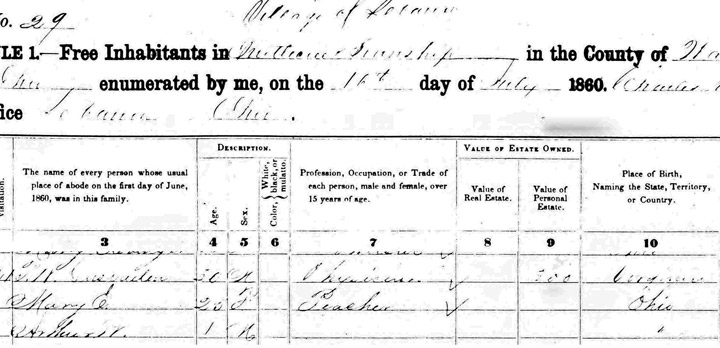 No. 29 Village of Lebanon
ULE 1.—Free Inhabitants in Township in the County of
Ohio enumerated by me, on the 16th day of July 1860. Charles
fice Lebanon Ohio.
DESCRIPTION. VALUE OF ESTATE OWNED.
Visitation. The name of every person whose usual place of abode on the first day of June, 1860, was in this family. Age. Sex. Color, { White, black, or mulatto. Profession, Occupation, or Trade of each person, male and female, over 15 years of age. Value of Real Estate. Value of Personal Estate. Place of Birth, Naming the State, Territory, or Country.
3 4 5 6 7 8 9 10
30 M Physician 300 Virginia
Mary E. 25 F Teacher Ohio
Arthur W. 1 M "